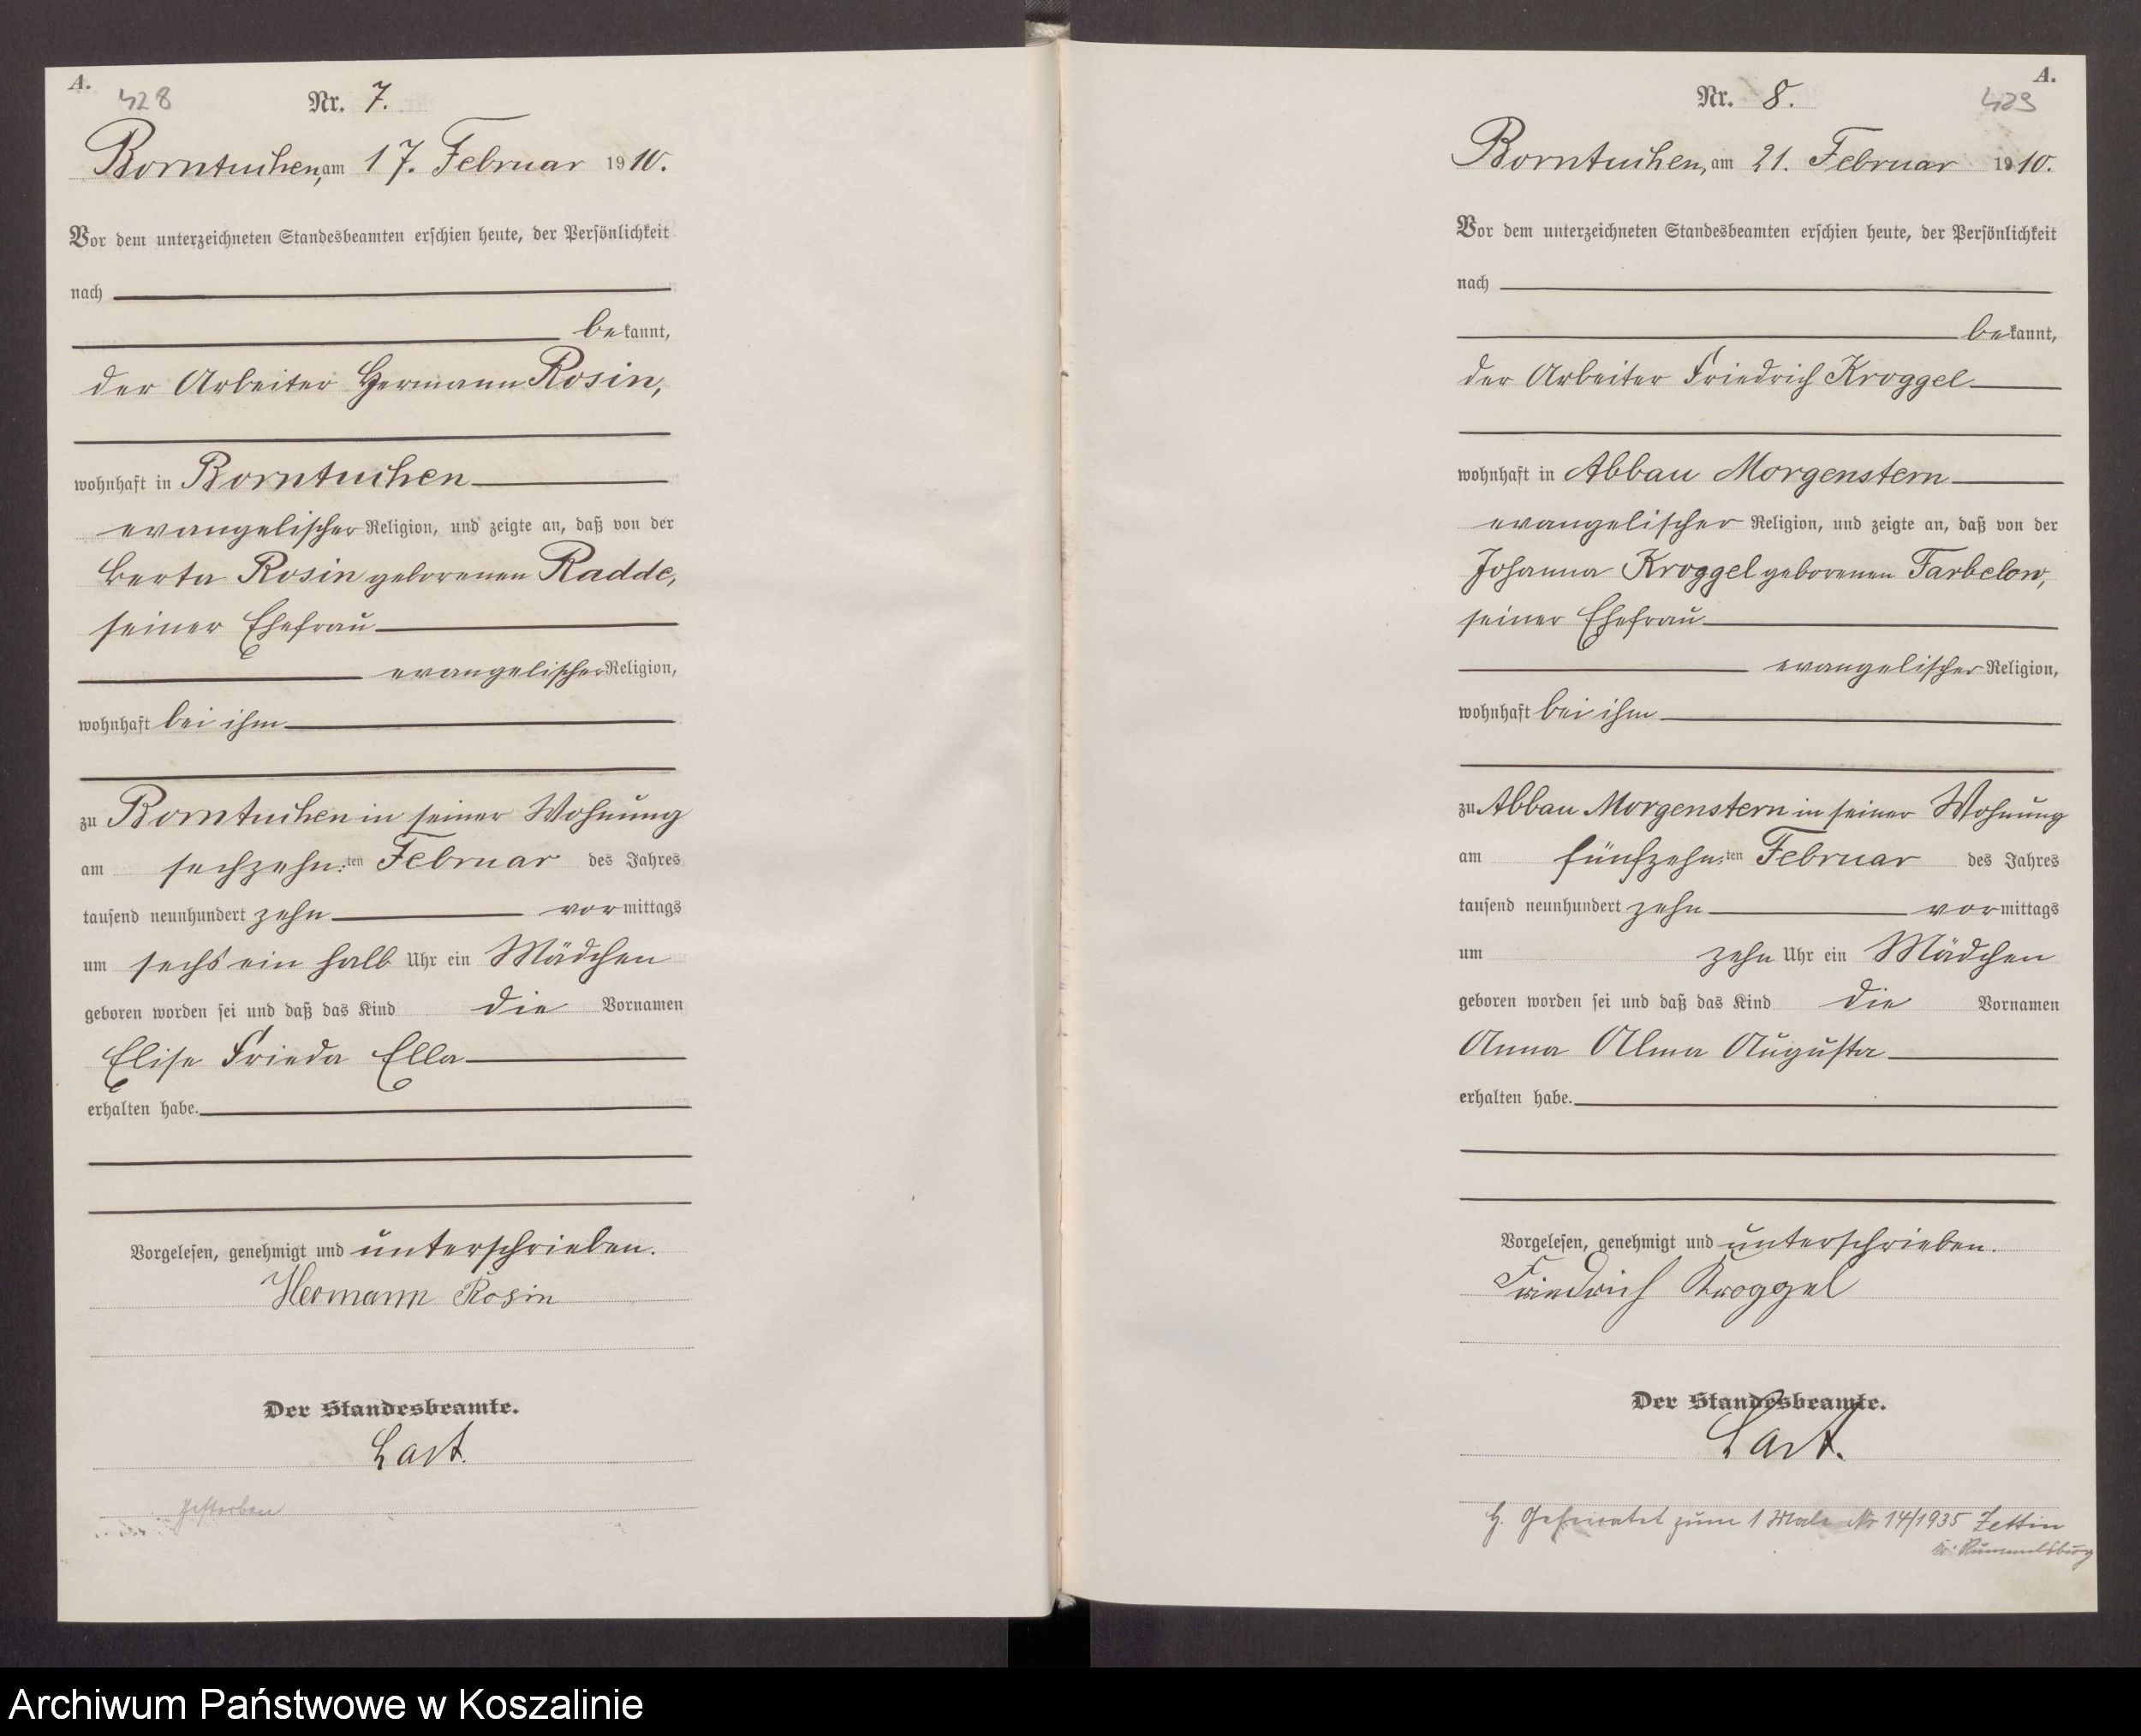 A.
428
Nr. 7.
Borntuchen, am 17. Februar 1910.
Vor dem unterzeichneten Standesbeamten erschien heute, der Persönlichkeit
nach
bekannt,
der Arbeiter Hermann Rosin,
wohnhaft in Borntuchen
evangelischer Religion, und zeigte an, daß von der
Berta Rosin geborenen Radde,
seiner Ehefrau
evangelischer Religion,
wohnhaft bei ihm
zu Borntuchen in seiner Wohnung
am sechzehnten Februar des Jahres
tausend neunhundert zehn vormittags
um sechs ein halb Uhr ein Mädchen
geboren worden sei und daß das Kind die Vornamen
Elise Frieda Ella
erhalten habe.
Vorgelesen, genehmigt und unterschrieben.
Hermann Rosin
Der Standesbeamte.
Last.
Gestorben
A.
429
Nr. 8.
Borntuchen, am 21. Februar 1910.
Vor dem unterzeichneten Standesbeamten erschien heute, der Persönlichkeit
nach
bekannt,
der Arbeiter Friedrich Kroggel
wohnhaft in Abbau Morgenstern
evangelischer Religion, und zeigte an, daß von der
Johanna Kroggel geborenen Farbelow,
seiner Ehefrau
evangelischer Religion,
wohnhaft bei ihm
zu Abbau Morgenstern in seiner Wohnung
am fünfzehnten Februar des Jahres
tausend neunhundert zehn vormittags
um zehn Uhr ein Mädchen
geboren worden sei und daß das Kind die Vornamen
Anna Alma Augusta
erhalten habe.
Vorgelesen, genehmigt und unterschrieben.
Friedrich Kroggel
Der Standesbeamte.
Last.
H. Geheiratet zum 1 Male Nr 14/1935 Zettin
Kr. Rummelsburg
Archiwum Państwowe w Koszalinie